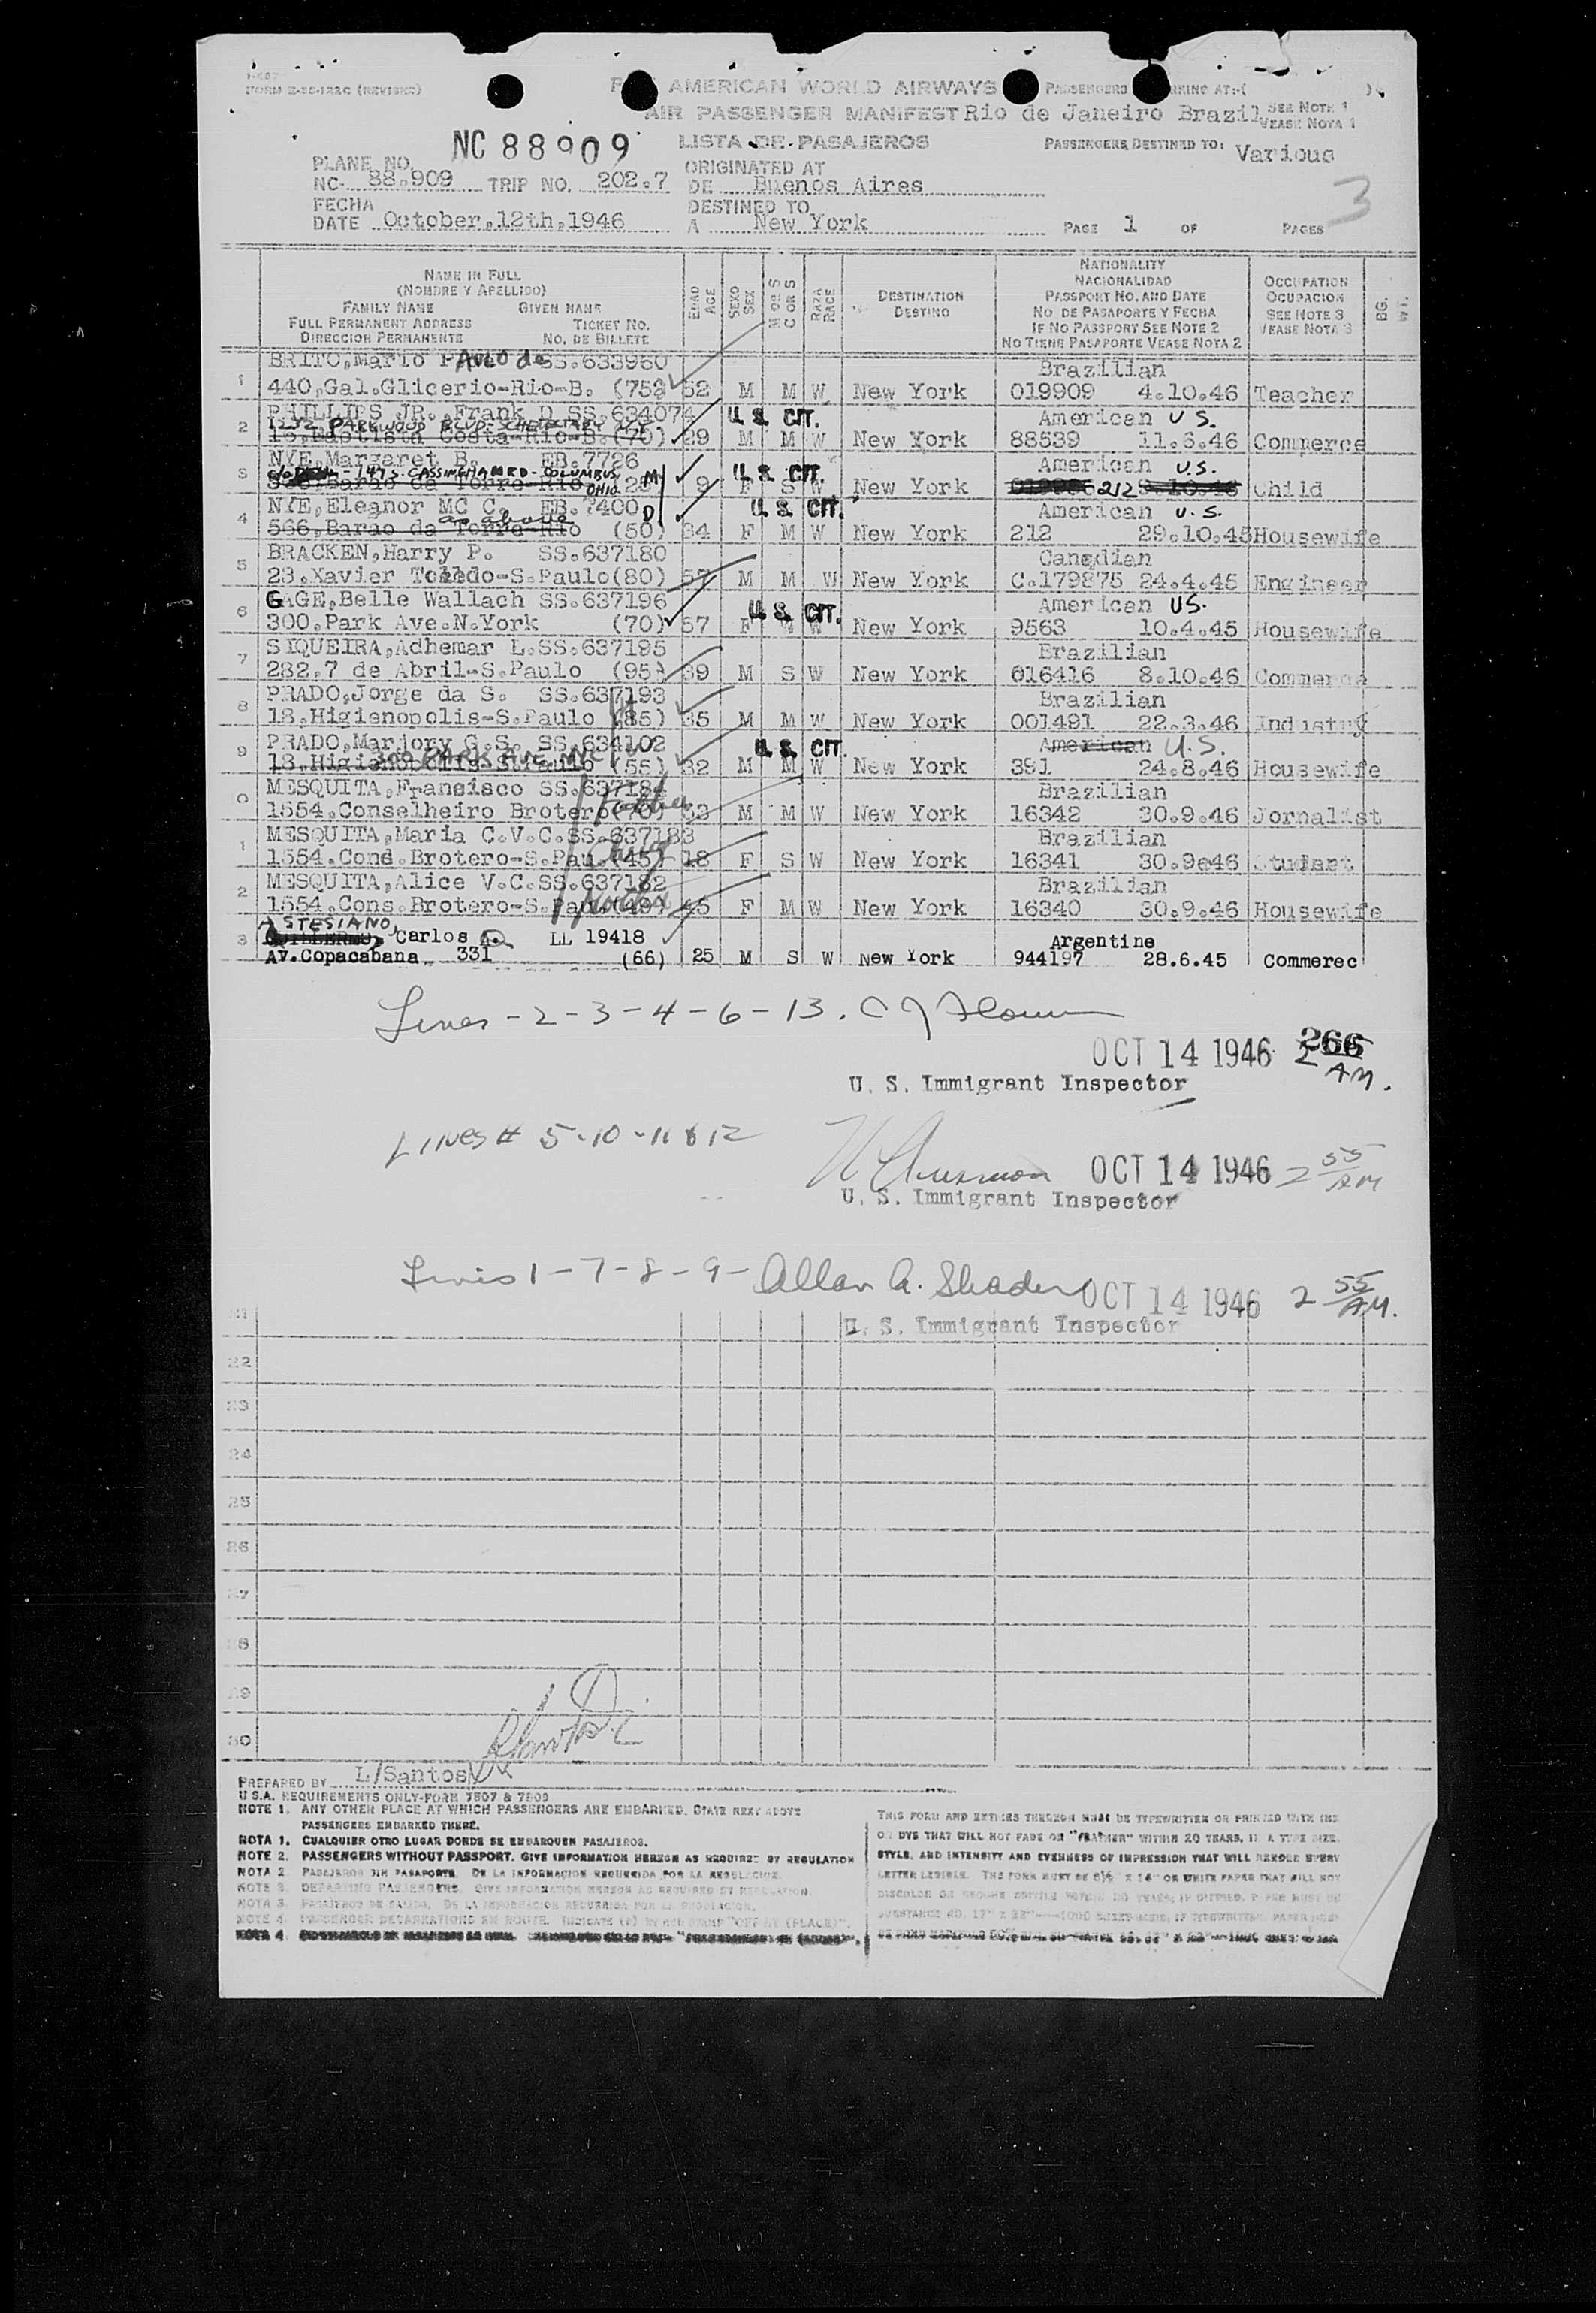 FORM
AMERICAN WORLD AIRWAYS
AIR PASSENGER MANIFEST Rio de Janeiro Brazil SEE NOTE 1
VEASE NOTA 1
NC 88909
LISTA DE PASAJEROS
PASSENGERS DESTINED TO: Various
PLANE NO.
NC- 88.909 TRIP NO. 202.7
ORIGINATED AT
DE Buenos Aires
FECHA
DATE October.12th.1946
DESTINED TO
A New York
PAGE 1 OF PAGES 3
NAME IN FULL
(NOMBRE Y APELLIDO)
FAMILY NAME GIVEN NAME
FULL PERMANENT ADDRESS TICKET NO.
DIRECCION PERMANENTE NO. DE BILLETE
EDAD AGE
SEXO SEX
M OR S
C OR S
RAZA RACE
DESTINATION
DESTINO
NATIONALITY
NACIONALIDAD
PASSPORT NO. AND DATE
NO DE PASAPORTE Y FECHA
IF NO PASSPORT SEE NOTE 2
NO TIENE PASAPORTE VEASE NOTA 2
OCCUPATION
OCUPACION
SEE NOTE 3
VEASE NOTA 3
BG. WT.
BRITO,Mario PAulo de SS.633960 Brazilian
1 440,Gal.Glicerio-Rio-B. 52 M M W New York 019909 4.10.46 Teacher
PHILLIPS JR.,Frank D SS.634074 U.S. CIT. American U S.
1232 PARKWOOD BLVD. SCHENECTADY
2 15,Baptista Costa-Rio-B.(70) 29 M M W New York 88539 11.6.46 Commerce
NYE,Margaret B. EB.7726 American U.S.
147 S. CASSINGHAM RD - COLUMBUS OHIO M U.S. CIT.
3 566,Barao da Torre-Rio 9 F S W New York 212 Child
NYE,Eleanor MC C. EB.7400 D U.S. CIT. American U.S.
as above
4 566,Barao da Torre-Rio (50) 34 F M W New York 212 29.10.45 Housewife
BRACKEN,Harry P. SS.637180 Canadian
5 23.Xavier Toledo-S.Paulo(80) 57 M M W New York C.179875 24.4.45 Engineer
GAGE,Belle Wallach SS.637196 U.S. CIT. American US.
6 300,Park Ave.N.York (70) 57 F W New York 9563 10.4.45 Housewife
SIQUEIRA,Adhemar L.SS.637195 Brazilian
7 282.7 de Abril-S.Paulo (95) 39 M S W New York 016416 8.10.46 Commerce
PRADO,Jorge da S. SS.637193 Brazilian
8 18.Higienopolis-S.Paulo (85) 35 M M W New York 001491 22.3.46 Industry
PRADO,Marjory G.S. SS.634102 U.S. CIT. American U.S.
300 PARK AVE NYC
9 18.Higienopolis-S.Paulo (55) 32 M M W New York 391 24.8.46 Housewife
MESQUITA,Francisco SS.637184 Brazilian
0 1554.Conselheiro Brotero(70) 53 M M W New York 16342 30.9.46 Jornalist
Father
MESQUITA,Maria C.V.C.SS.637183 Brazilian
1 1554.Cons.Brotero-S.Pau.(45) 18 F S W New York 16341 30.9.46 Student
MESQUITA,Alice V.C.SS.637182 Brazilian
2 1554.Cons.Brotero-S.Pau. 45 F M W New York 16340 30.9.46 Housewife
Mother
ASTESIANO,
3 GUILLERMO, Carlos A. LL 19418 Argentine
Av.Copacabana 331 (66) 25 M S W New York 944197 28.6.45 Commerec
Lines - 2 - 3 - 4 - 6 - 13.
OCT 14 1946 AM.
U. S. Immigrant Inspector
LINES # 5-10-11 & 12
OCT 14 1946 2 55 AM
U. S. Immigrant Inspector
Lines 1 - 7 - 8 - 9 - Allan A. Shader OCT 14 1946 2 55 AM.
U. S. Immigrant Inspector
21
22
23
24
25
26
27
28
29
30
PREPARED BY L/Santos
U.S.A. REQUIREMENTS ONLY-FORM 7507 & 7509
NOTE 1. ANY OTHER PLACE AT WHICH PASSENGERS ARE EMBARKED. STATE NEXT ABOVE
PASSENGERS EMBARKED THERE.
NOTA 1. CUALQUIER OTRO LUGAR DONDE SE EMBARQUEN PASAJEROS.
NOTE 2. PASSENGERS WITHOUT PASSPORT. GIVE INFORMATION HEREON AS REQUIRED BY REGULATION
NOTA 2. PASAJEROS SIN PASAPORTE. DE LA INFORMACION REQUERIDA POR LA REGULACION.
NOTE 3. DEPARTING PASSENGERS. GIVE INFORMATION HEREON AS REQUIRED BY REGULATION.
NOTA 3. PASAJEROS DE SALIDA. DE LA INFORMACION REQUERIDA POR LA REGULACION.
NOTE 4. PASSENGER DEBARKATIONS EN ROUTE. INDICATE "OFF AT (PLACE)".
NOTA 4.
THIS FORM AND ENTRIES THEREON MUST BE TYPEWRITTEN OR PRINTED WITH INK
OR DYE THAT WILL NOT FADE OR "FEATHER" WITHIN 20 YEARS, IN A TYPE SIZE,
STYLE, AND INTENSITY AND EVENNESS OF IMPRESSION THAT WILL RENDER EVERY
LETTER LEGIBLE. THE FORM MUST BE 8½ X 14" ON WHITE PAPER THAT WILL NOT
DISCOLOR OR BECOME BRITTLE WITHIN 20 YEARS;